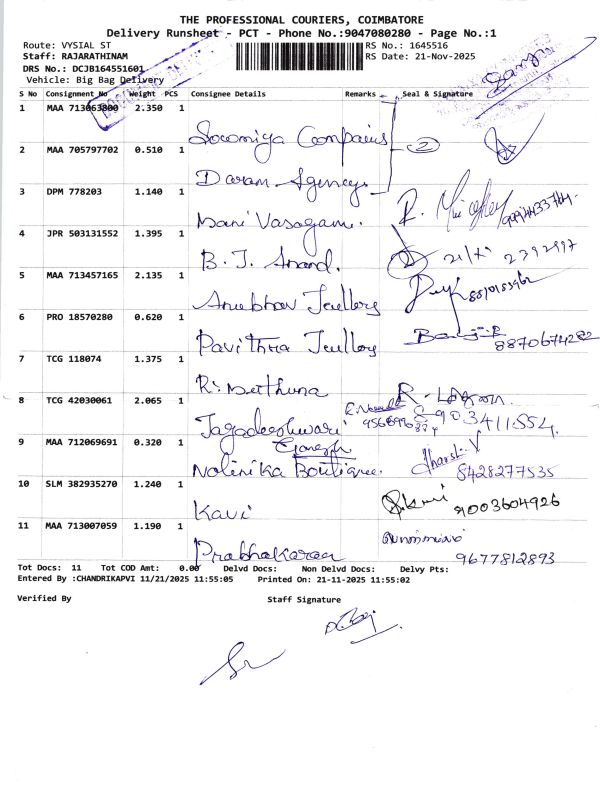 THE PROFESSIONAL COURIERS, COIMBATORE
Delivery Runsheet - PCT - Phone No.:9047080280 - Page No.:1
Route: VYSIAL ST RS No.: 1645516
Staff: RAJARATHINAM RS Date: 21-Nov-2025
DRS No.: DCJB164551601
Vehicle: Big Bag Delivery
S No Consignment No Weight PCS Consignee Details Remarks Seal & Signature
1 MAA 713063800 2.350 1
Sowmiya Compains 2
2 MAA 705797702 0.510 1
Daram Agencys
3 DPM 778203 1.140 1
Mani Vasagam.
4 JPR 503131552 1.395 1
B. J. Anand. 21/11 2392997
5 MAA 713457165 2.135 1
Anubhav Jeullery
6 PRO 18570280 0.620 1
Pavithra Jeullery
7 TCG 118074 1.375 1
R.
8 TCG 42030061 2.065 1
Jagadeeshwari
Ganesh
9 MAA 712069691 0.320 1
Nalinika Boutique. 8428277535
10 SLM 382935270 1.240 1
Kavi 9003604926
11 MAA 713007059 1.190 1
Prabhakaran 9677812893
Tot Docs: 11 Tot COD Amt: 0.00 Delvd Docs: Non Delvd Docs: Delvy Pts:
Entered By :CHANDRIKAPVI 11/21/2025 11:55:05 Printed On: 21-11-2025 11:55:02
Verified By Staff Signature